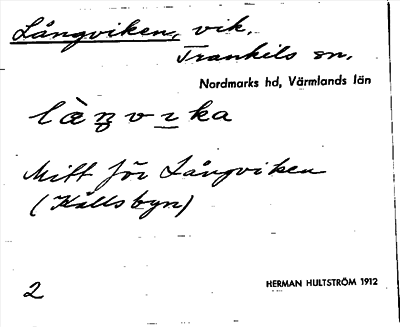 Långviken, vik,
Trankils sn.
Nordmarks hd, Värmlands län
Mitt för Långviken
(Källsbyn)
2
HERMAN HULTSTRÖM 1912